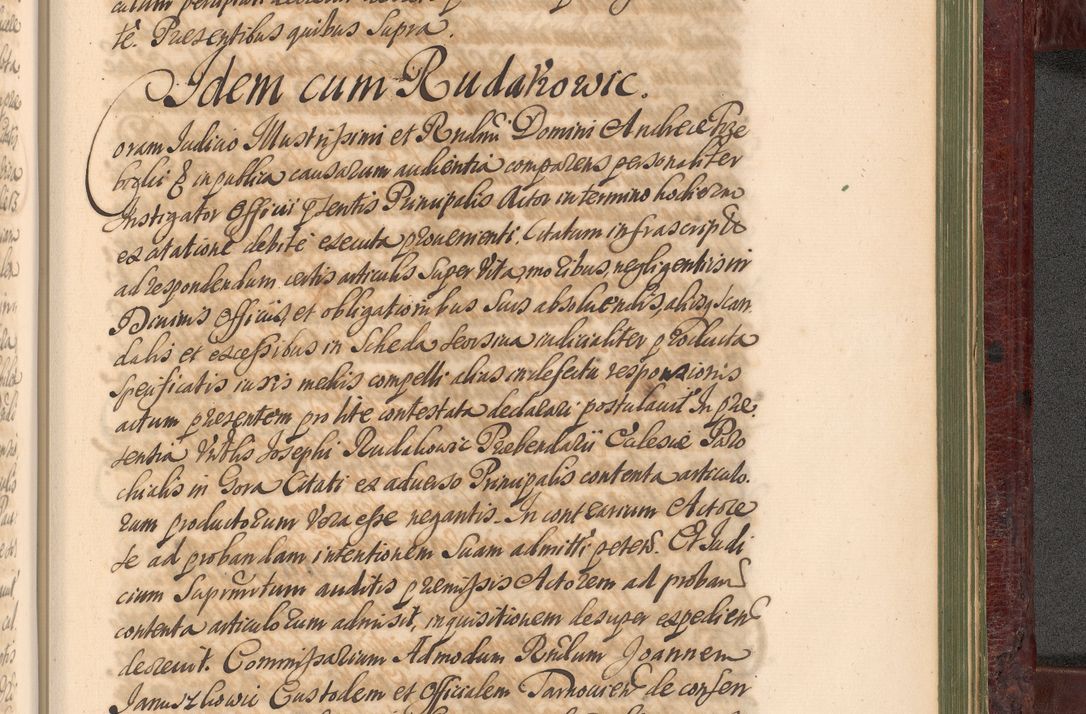 tê. Presentibus quibus Supra.
Idem cum Rudakowic.
Coram Judicio Illustrissimi et Rndmi Domini Andreæ Trze
bylii & in publica causarum audientia comparens personaliter
Instigator Officii psentis Principalis Actor in termino hodierno
ex citatione debite executa prouenienti Citatum infrascriptũ
ad respondendum certis articulis Super Vita, moribus, negligentiis in
Diuinis Officiis, et obligationibus Suis absoluendis, aliisq Scan
dalis et excessibus in Scheda Seorsiua iudicialiter producta
Specificatis iuris mediis compelli alias in defectu responsionis
actum presentem pro lite contestata declarari postulauit In pre
sentia Vnblis Josephi Rudakowic Prebendarii Eclesiæ Paro
chialis in Gora Citati ex aduerso Principalis contenta articulo
rum productorum Vera esse negantis. In contrarium Actore
Se ad probandam intentionem Suam admitti peteñ. Et Judi
cium Suprmtum auditis premissis Actorem ad proband
contenta articulorum admisit, inquisitionem desuper expedien
decreuit. Commissarium Admodum Rndum Joannem
Januszkowic Custodem et Officialem Tarnouien de consen